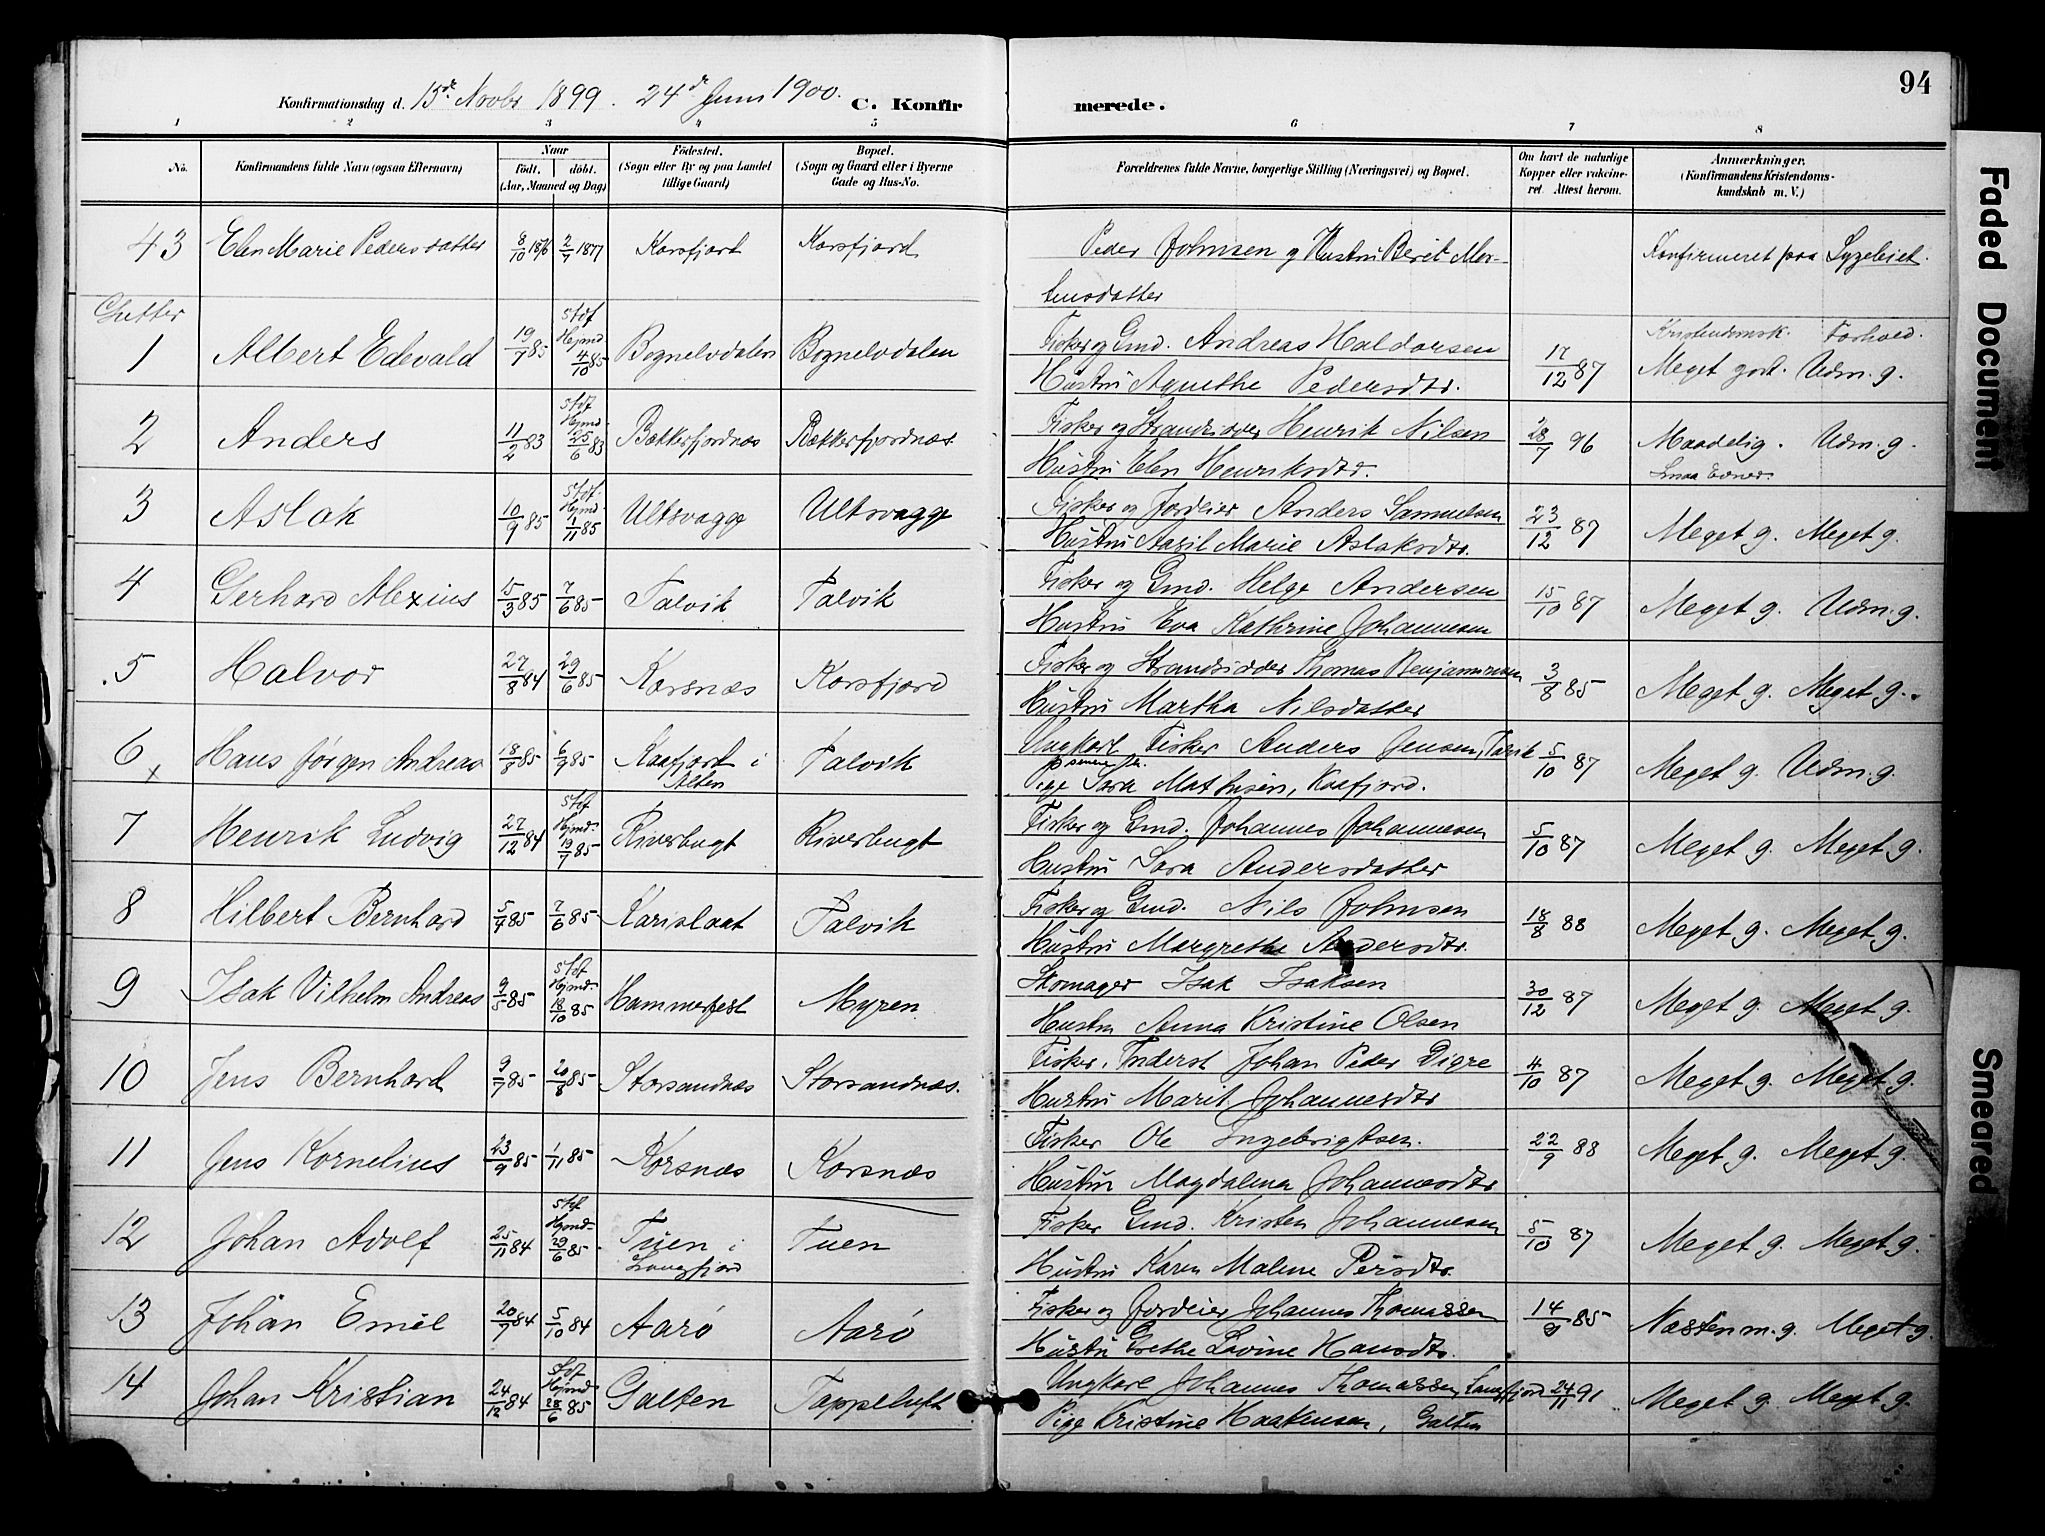 94
Konfirmationsdag d. 15de Novbr 1899. 24de Juni 1900. C. Konfirmerede.
1 2 3 4 5 6 7 8
No. Konfirmandens fulde Navn (ogsaa Efternavn) Naar født. døbt. (Aar, Maaned og Dag) Fødested. (Sogn eller By og paa Landet tillige Gaard) Bopæl. (Sogn og Gaard eller i Byerne Gade og Hus-No. Forældrenes fulde Navne, borgerlige Stilling (Næringsvei) og Bopæl. Om havt de naturlige Kopper eller vakcineret. Attest herom. Anmærkninger. (Konfirmandens Kristendomskundskab m. V.)
43 Elen Marie Pedersdatter 8/10 1876 2/1 1877 Korsfjord Korsfjord Peder Johnsen g Hustru Berit Mor- Konfirmeret paa Sygeleiet.
tensdatter
Gutter
Kristendomsk. Forhold.
1 Albert Edevald 19/7 85 Stdf Hjmd. 4/10 85 Bognelvdalen Bognelvdalen Fisker og Gmd. Andreas Haldorsen 17/12 87 Meget godt. Udm. g.
Hustru Agnethe Pedersdtr.
2 Anders 11/2 83 Stdf Hjmd. 25/6 83 Bækkerfjordnæs Bækkerfjordnæs. Fisker og Strandsidder Henrik Nilsen 28/7 96 Maadelig. Udm. g.
Hustru Elen Henriksdtr.
3 Aslak 10/9 85 Stdf. Hjmd. 1/11 85 Ultsvagge Ultsvagge Fisker og Jordeier Anders Samuelsen 23/12 87 Meget g. Meget g.
Hustru Marie Aslaksdtr.
4 Gerhard Alexius 15/3 85 7/6 85 Talvik Talvik Fisker og Gmd. Helge Andersen 15/10 87 Meget g. Udm. g.
Hustru Eva Kathrine Johannesen
5 Halvor 27/8 84 29/6 85 Korsnæs Korsfjord Fisker og Strandsidder Thomas Benjaminsen 3/8 85 Meget g. Meget g.
Hustru Martha Nilsdatter
6 x Hans Jørgen Andreas 18/8 85 6/9 85 Kaafjord i Alten Talvik Ungkarl Fisker Anders Jensen, Talvik 5/10 87 Meget g. Udm. g.
Pige Sara Mathisen, Kaafjord.
7 Henrik Ludvig 27/12 84 Stdf Hjmd. 19/7 85 Riverbugt Riverbugt Fisker og Gmd. Johannes Johannesen 5/10 87 Meget g. Meget g.
Hustru Sara Andersdatter
8 Hilbert Bernhard 5/4 85 7/6 85 Karislaat Talvik Fisker og Gmd. Nils Johnsen 18/8 88 Meget g. Meget g.
Hustru Margrethe Andersdtr.
9 Isak Vilhelm Andreas 9/5 85 Stdf Hjmd. 18/10 85 Hammerfest Myren Skomager Isak Isaksen 30/12 87 Meget g. Meget g.
Hustru Anna Kristine Olsen
10 Jens Bernhard 9/7 85 20/8 85 Storsandnæs Storsandnæs. Fisker, Inderst Johan Peder Digre 4/10 87 Meget g. Meget g.
Hustru Marit Johannesdtr
11 Jens Kornelius 23/9 85 1/11 85 Korsnæs Korsnæs Fisker Ole Ingebrigtsen. 22/9 88 Meget g. Meget g.
Hustru Magdalena Johannesdtr
12 Johan Adolf 25/11 84 Stdf Hjmd. 29/6 85 Tuen i Langfjord Tuen Fisker Gmd. Kristen Johannesen 5/10 87 Meget g. Meget g.
Hustru Karen Malene Persdtr.
13 Johan Emil 20/7 84 5/10 84 Aarø Aarø Fisker og Jordeier Johannes Thomassen 14/9 85 Næsten m. g. Meget g.
Hustru Grethe Lovine Hansdtr.
14 Johan Kristian 24/12 84 Stdf Hejmd 28/6 85 Galten Tappeluft Ungkarl Johannes Thomassen, Langfjord 24/11 91 Meget g. Meget g.
Pige Kristine Haakensen, Galten
Faded Document
Smeared